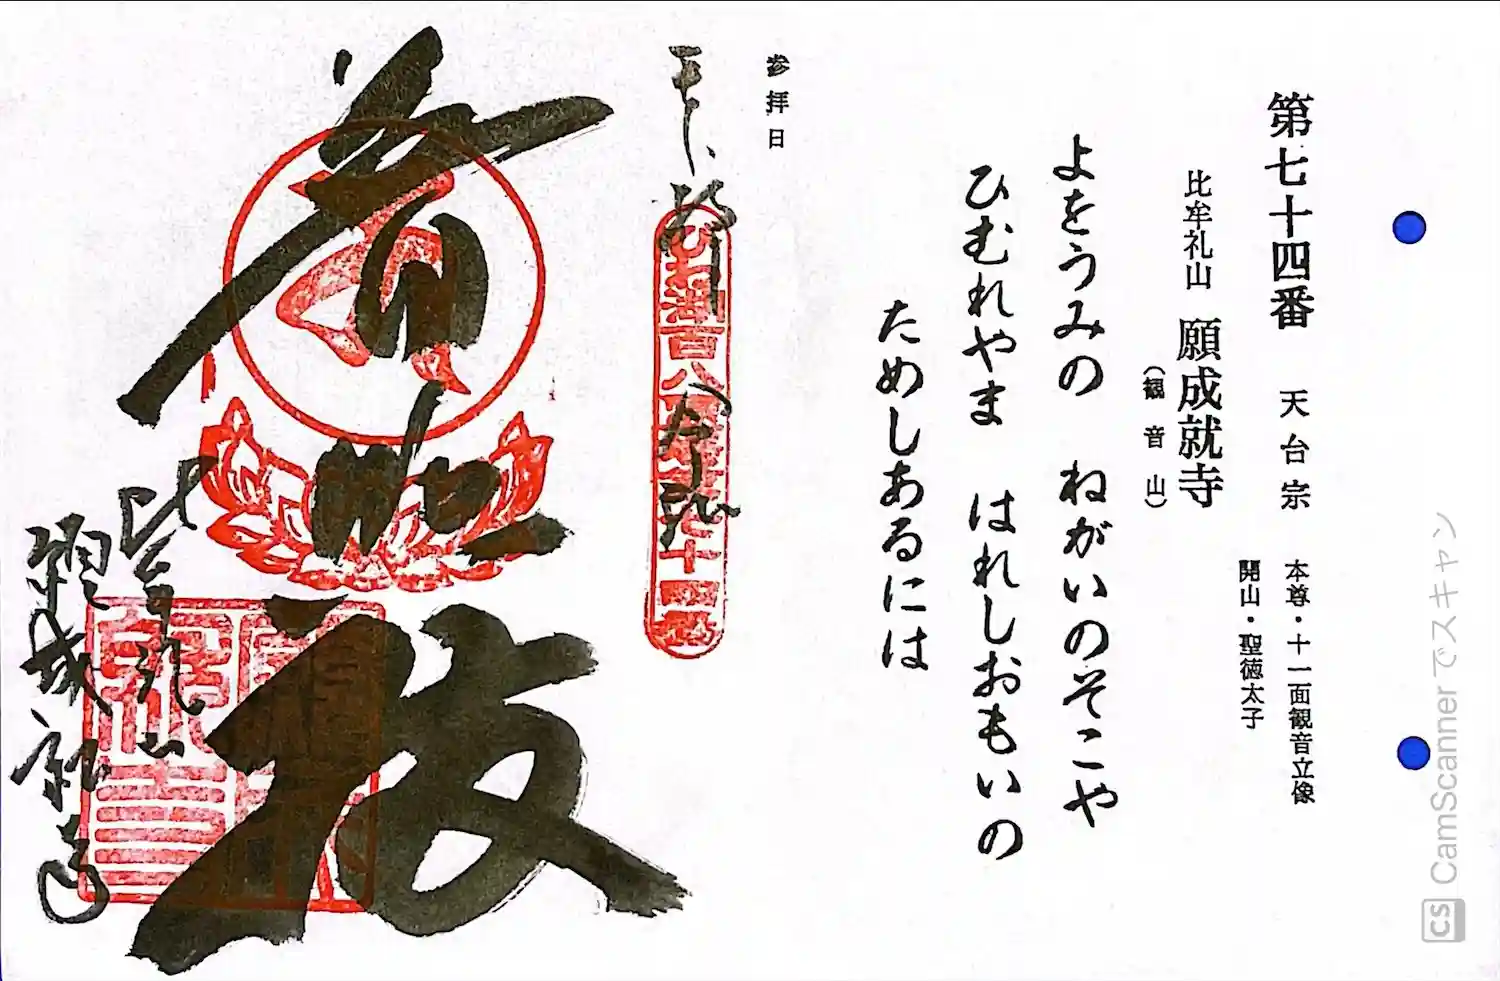 第七十四番 天台宗 本尊・十一面観音立像
開山・聖徳太子
比牟礼山 願成就寺
(観音山)
よをうみの ねがいのそこや
ひむれやま はれしおもいの
ためしあるには
参拝日
びわ湖百八霊場第七十四番
比牟礼山
願成就寺
CamScannerでスキャン
CS